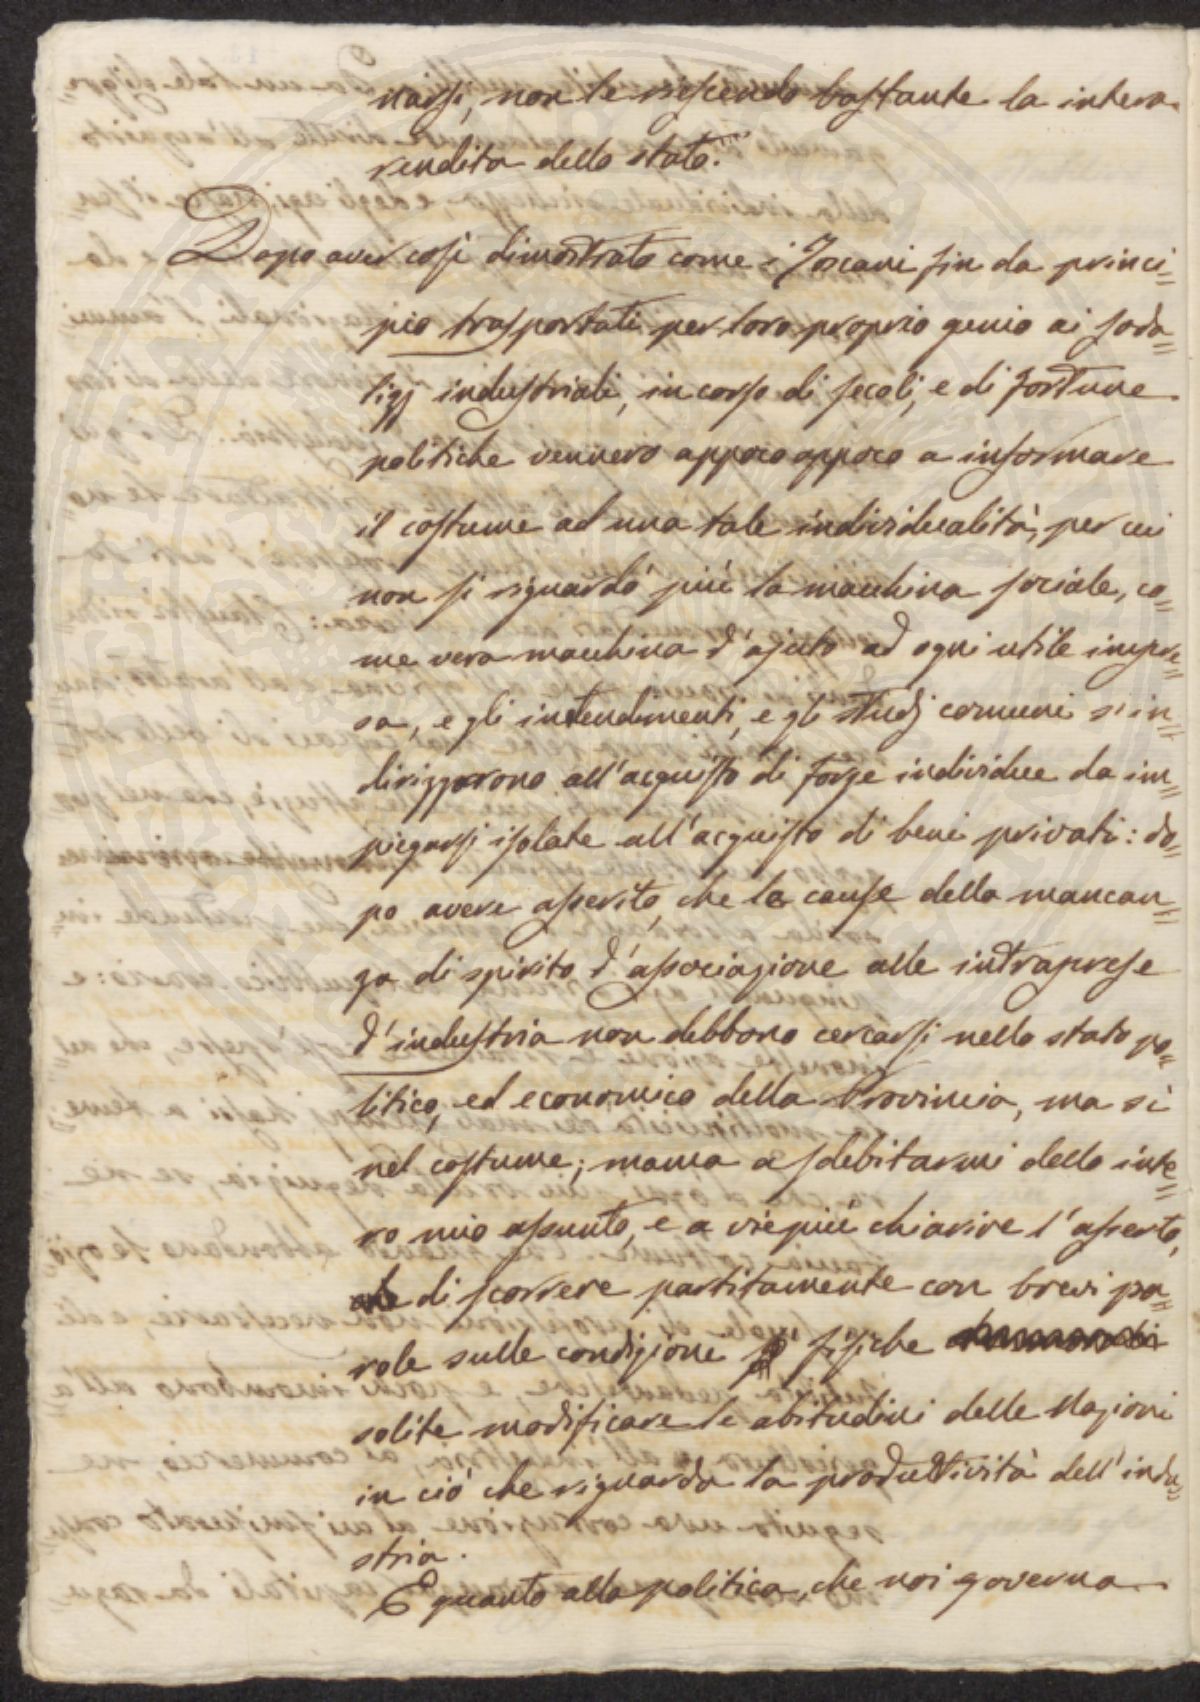 narsi, non le riescendo bastante la intera
rendita dello stato."
Dopo aver così dimostrato come i Toscani fin da princi=
pio trasportati per loro proprio genio ai soda=
lizj industriali, in corso di secoli, e di fortune
politiche vennero appoco appoco a informare
il costume ad una tale individualità, per cui
non si riguardò più la macchina sociale, co=
me vera macchina d'ajuto ad ogni utile impre=
sa, e gli intendimenti, e gli studj comuni s'in=
dirizzarono all'acquisto di forze individue da im=
piegarsi isolate all'acquisto di beni privati: do=
po avere asserito, che le cause della mancan=
za di spirito d'associazione alle intraprese
d'industria non debbono cercarsi nello stato po=
litico, ed economico della Provincia, ma sì
nel costume; manca a sdebitarmi dello inte=
ro mio assunto, e a viepiù chiarire l'asserto,
di scorrere partitamente con brevi pa=
role sulle condizione fisiche
solite modificare le abitudini delle Nazioni
in ciò che riguarda la produttività dell'indu=
stria.
E quanto alla politica, che noi governa